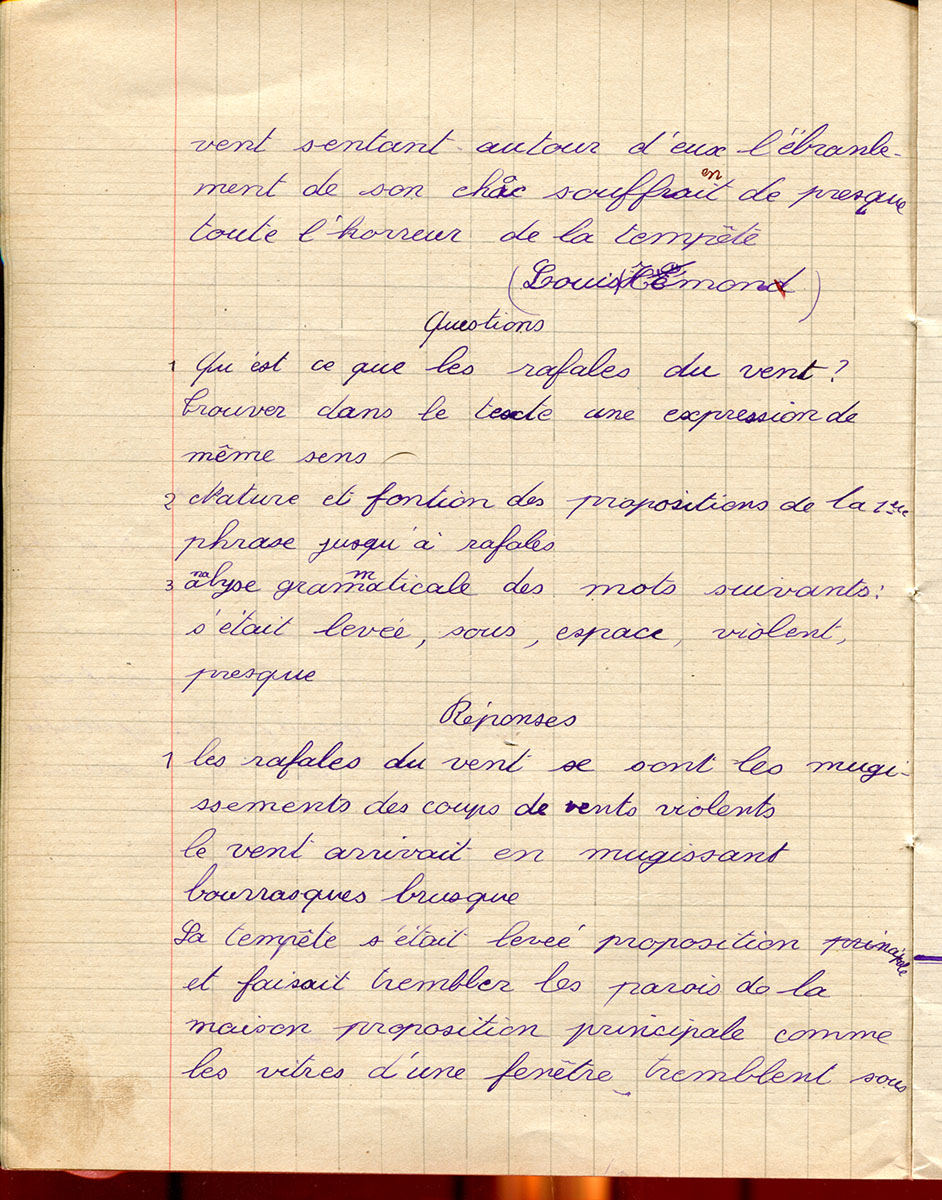 vent sentant autour d'eux l'ébranle-
ment de son choc souffrait en de presque
toute l'horreur de la tempête
(Louis Hémon)
Questions
1 Qu'est ce que les rafales du vent ?
trouver dans le texte une expression de
même sens
2 Nature et fontion des propositions de la 1ère
phrase jusqu'à rafales
3 analyse grammaticale des mots suivants :
s'était levée, sous, espace, violent,
presque
Réponses
1 les rafales du vent se sont les mugi-
ssements des coups de vents violents
le vent arrivait en mugissant
bourrasques brusque
La tempête s'était levée proposition principale
et faisait trembler les parois de la
maison proposition principale comme
les vitres d'une fenêtre tremblent sous